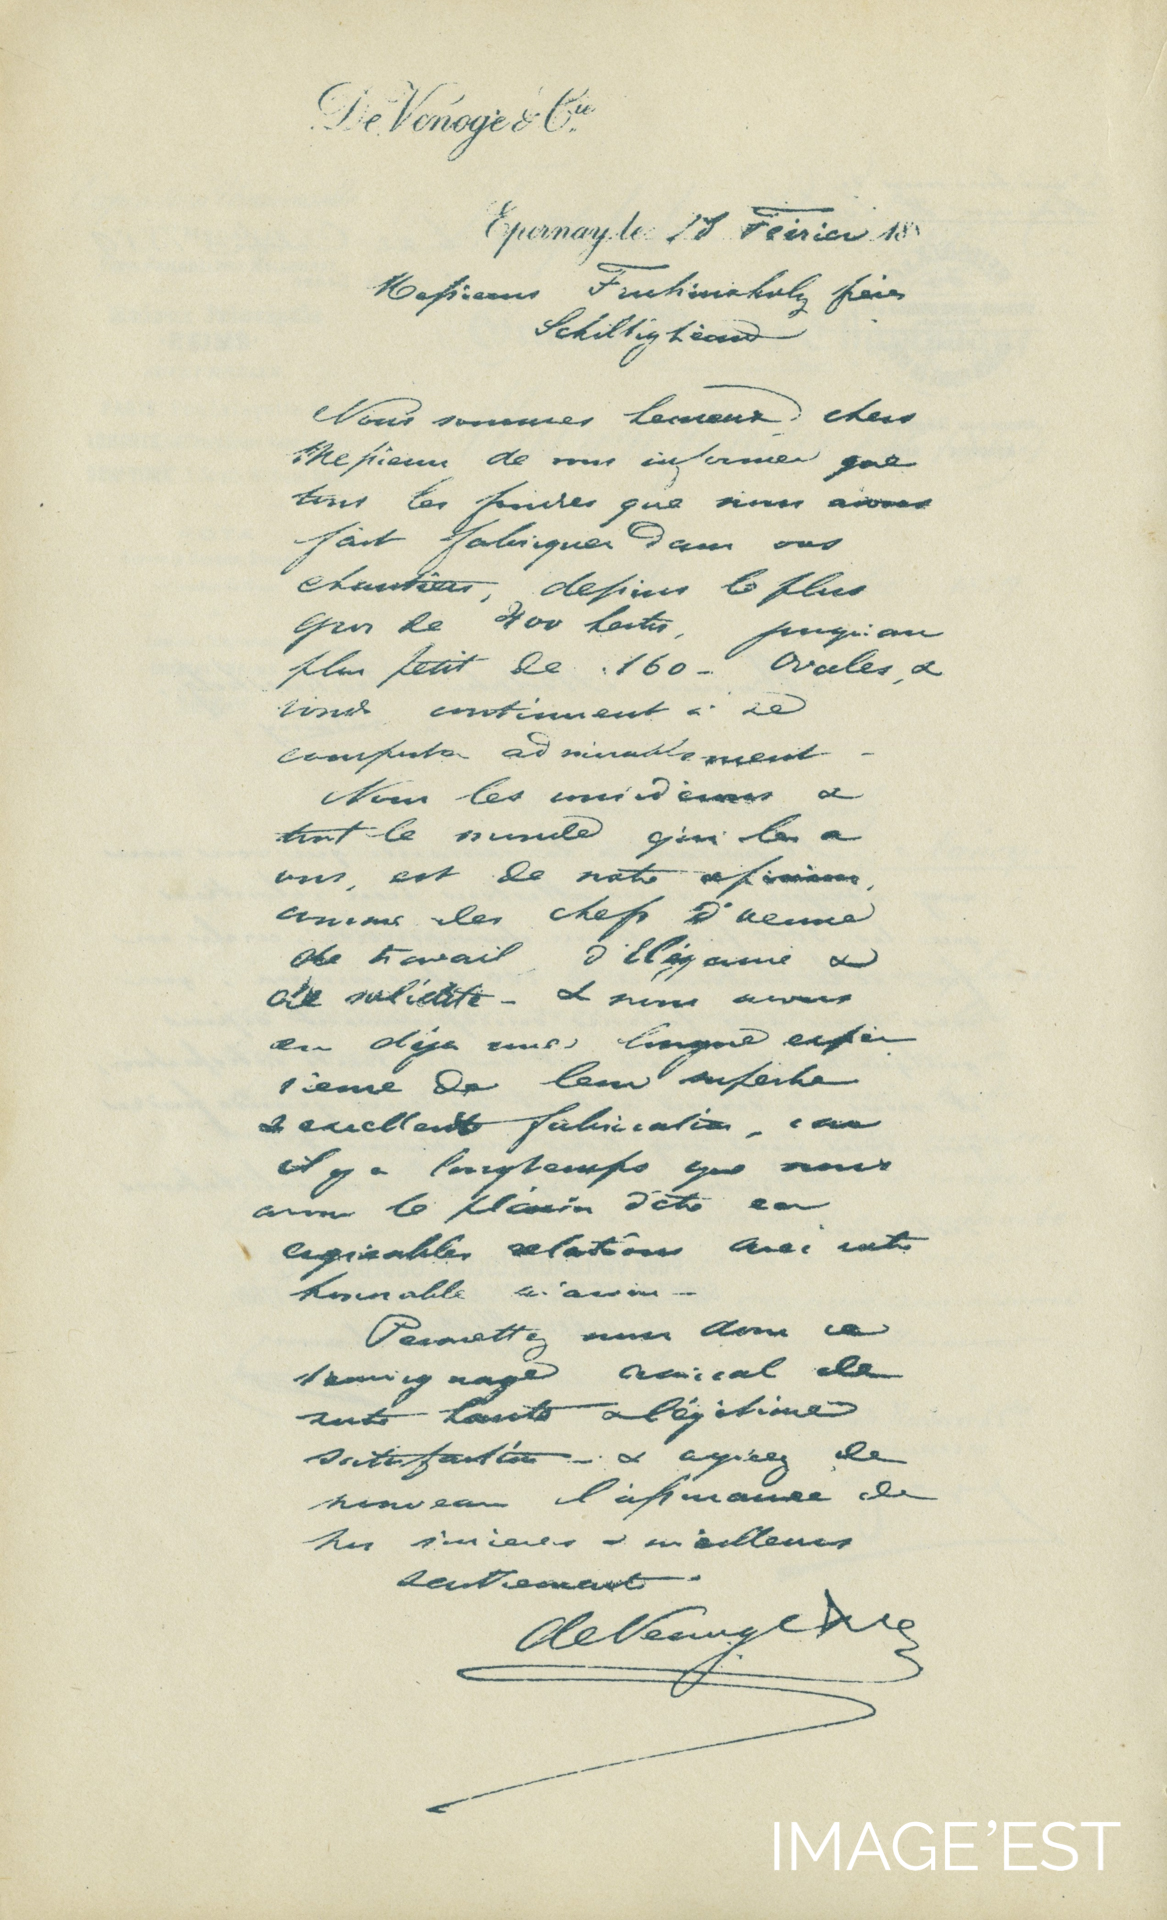 De Venoge & Cie
Epernay, le 15 Février 18
Messieurs Fruhinsholz frères
Schiltigheim
Nous sommes heureux, chers
Messieurs de vous informer que
tous les foudres que nous avons
fait fabriquer dans vos
chantiers, depuis le plus
gros de 400 hectos, jusqu'au
plus petit de 160 - ovales, &
ronds continuent à se
comporter admirablement -
Nous les considérons &
tout le monde qui les a
vus, est de notre opinion,
comme des chefs d'œuvre
de travail, d'élégance &
de solidité - & nous avons
eu déjà une longue expé
rience de leur superbe
& excellente fabrication, car
il y a longtemps que nous
avons le plaisir d'être en
agréables relations avec votre
honorable maison -
Permettez nous donc ce
témoignage amical de
notre haute & légitime
satisfaction - & agréez de
nouveau l'assurance de
nos sincères & meilleurs
sentiments.
de Venoge & Cie
IMAGE'EST